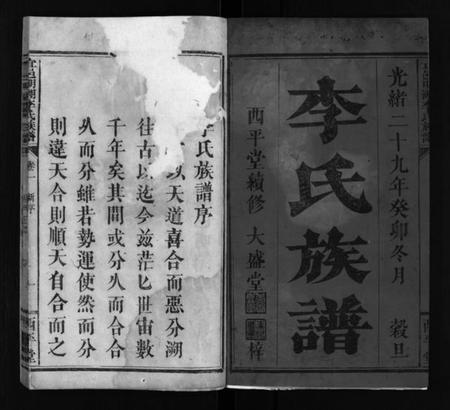 光緒二十九年癸卯冬月 穀旦
李氏族譜
西平堂續修 大盛堂 梓
李氏族譜序
以天道喜合而惡分溯
往古以迄今茲茫匕世宙數
千年矣其間或分久而合合
久而分雖若勢運使然而分
則違天合則順天自合而之
李氏族譜
卷一 新序 一
西平堂